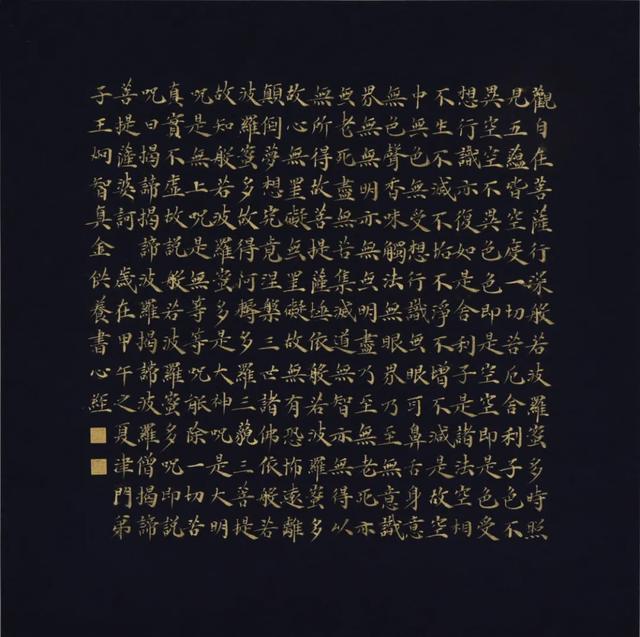 觀自在菩薩行深般若波羅蜜多時照
見五蘊皆空度一切苦厄合利子色不
異空空不異色色即是空空即是色受
想行識亦復如是合利子是諸法空相
不生不滅不垢不淨不增不減是故空
中色無受想行識無眼耳鼻舌身意
無色聲香味觸法無眼界乃至無意識
界無無明亦無無明盡乃至無老死亦
旡老死盡無苦集滅道無智亦無得以
無所得故善提薩埵依般若波羅蜜多
故心無罣礙無罣礙故無有恐怖遠離
顛倒夢想究竟涅槃三世諸佛依般若
波羅蜜多故得何耨多羅三藐三菩提
故知般若波羅蜜多是大神呪是大明
呪是無上呪是無等等呪能除一切苦
真實不虛故說般若波羅蜜多呪即説
呪曰揭諦揭諦波羅揭諦波羅僧揭諦
善提薩婆訶 歲在甲午之夏津門弟
子王炯智真金供養書心經